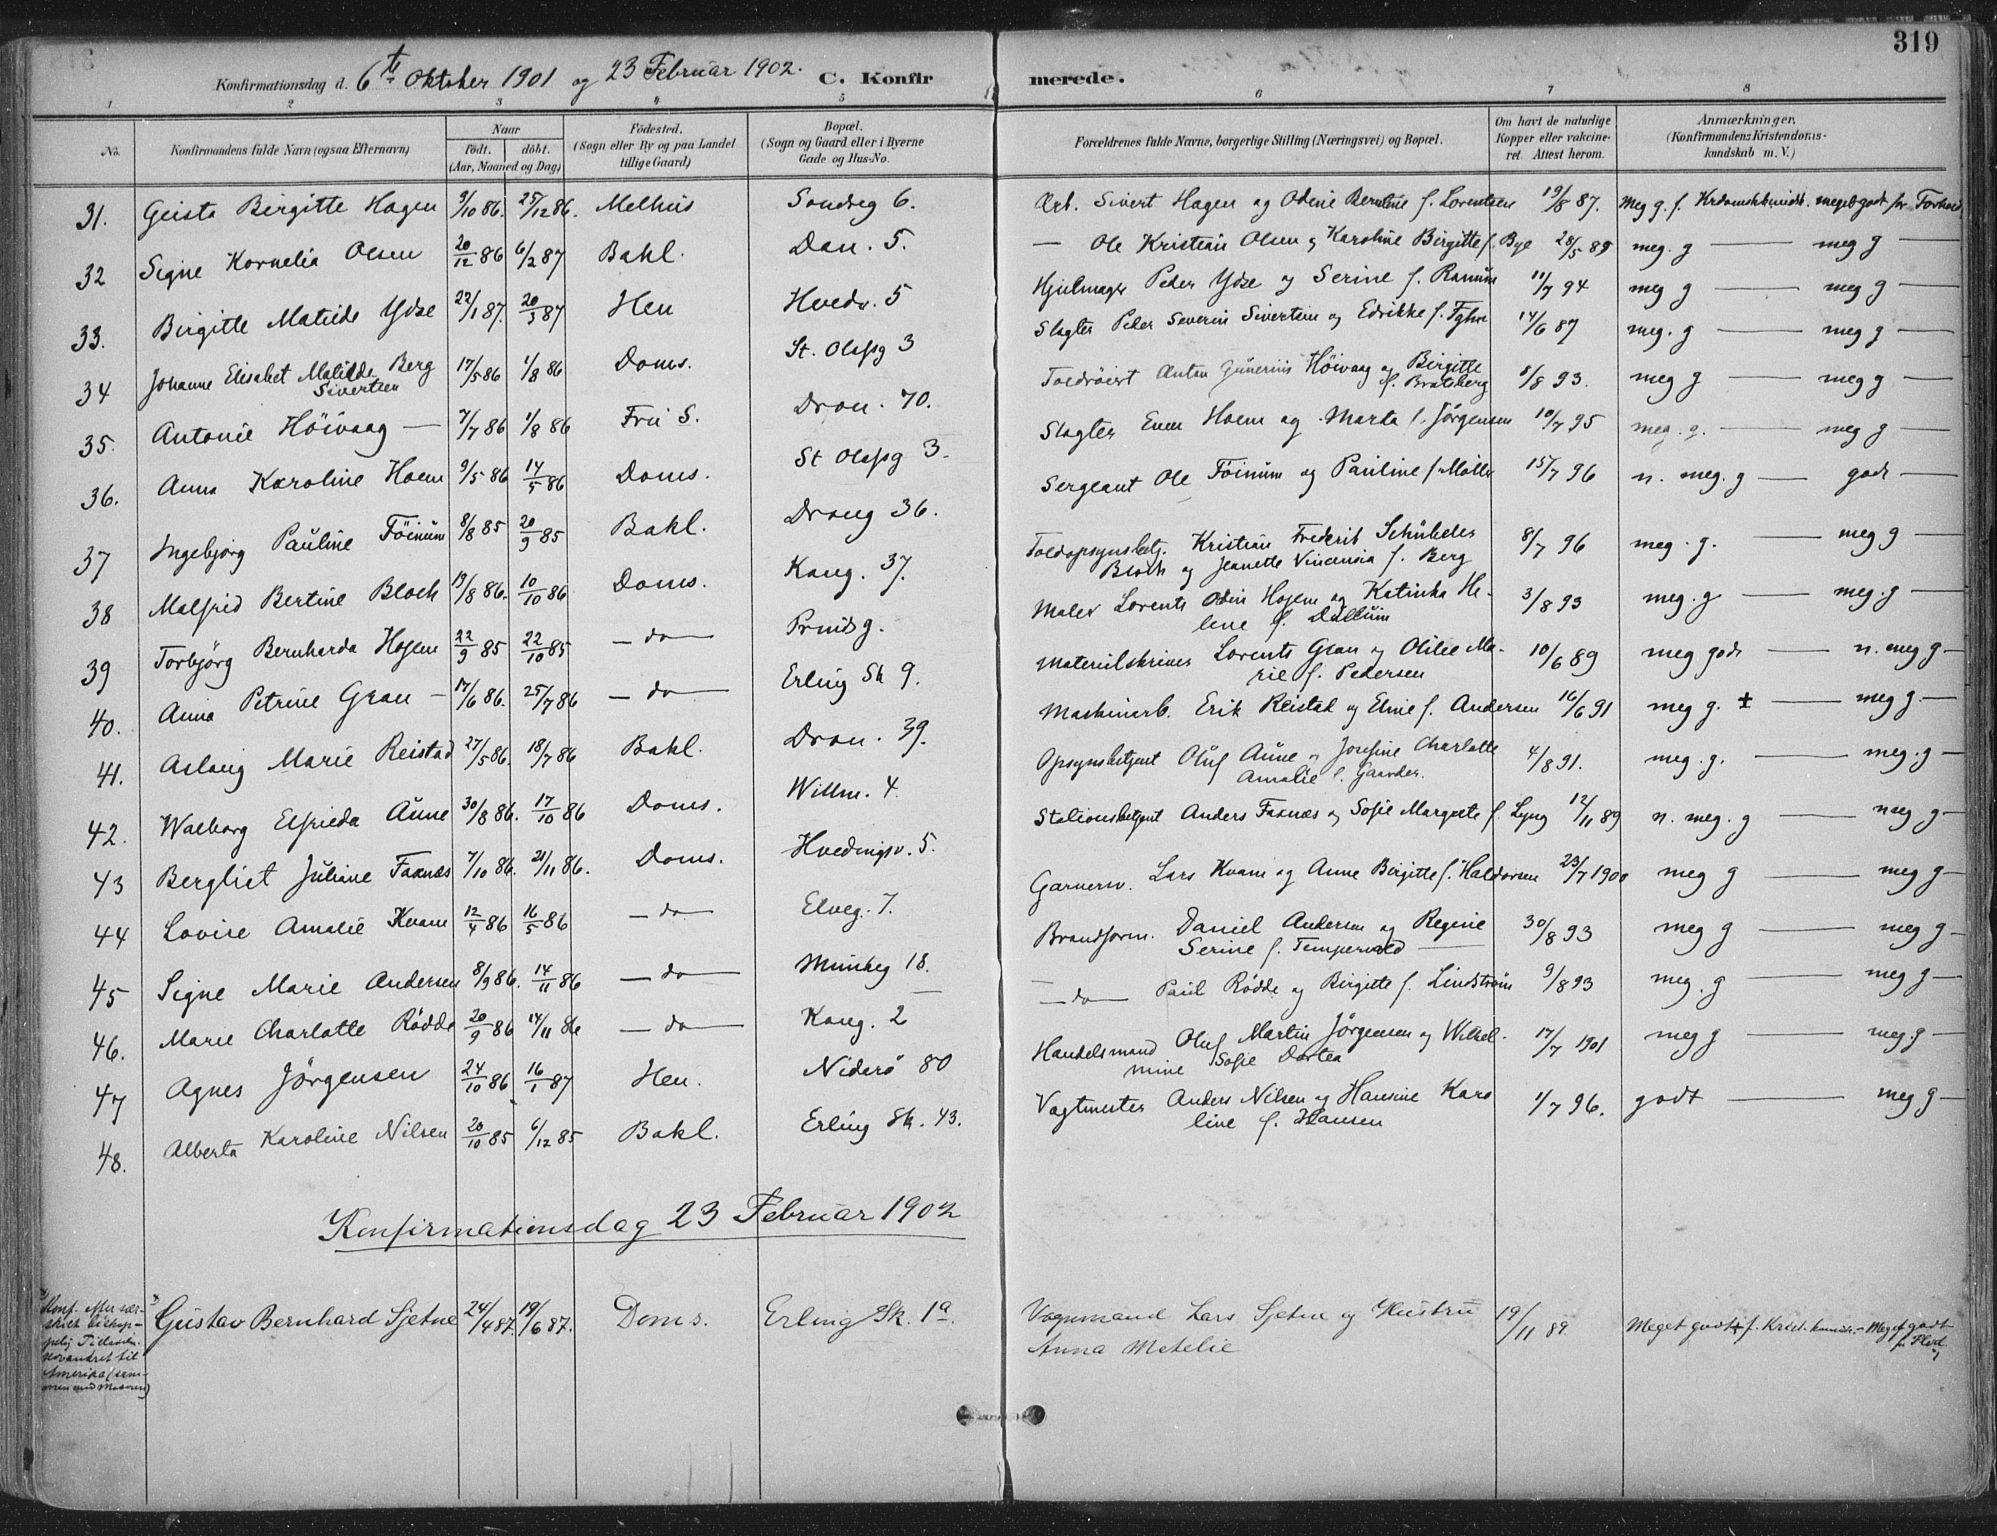 319
Konfirmationsdag d. 6te Oktober 1901 og 23 Februar 1902. C. Konfirmerede.
1 2 3 4 5 6 7 8
No. Konfirmandens fulde Navn (ogsaa Efternavn) Naar født. døbt. (Aar, Maaned og Dag) Fødested. (Sogn eller By og paa Landet tillige Gaard) Bopæl. (Sogn og Gaard eller i Byerne Gade og Hus-No. Forældrenes fulde Navne, borgerlige Stilling (Næringsvei) og Bopæl. Om havt de naturlige Kopper eller vakcineret. Attest herom. Anmærkninger. (Konfirmandens Kristendomskundskab m. V.)
31. Geista Birgitte Hagen 9/10 86. 25/12 86. Melhus Sandveg 6. Arb. Sivert Hagen og Odine Berntine f. Lorentsen 19/8 87. Meg g. f. Krdomskundsk. meget godt for Forhold
32 Signe Kornelia Olsen 20/12 86 6/2 87 Bakl. Dan. 5. — Ole Kristian Olsen og Karoline Birgitte f. Bye 28/5 89 meg. g — meg g —
33. Birgitte Matilde Ydse 22/1 87. 20/3 87 Hen Hvedv. 5 Hjulmager Peder Ydse og Serine f. Ranum 11/7 94 meg g — meg g —
34 Johanne Elisabet Matilde Berg Sivertsen 17/5 86 1/8 86 Doms. St. Olafsg 3 Slagter Peder Severin Sivertsen og Edrikke f. 14/6 87 meg. g — meg g —
35. Antonie Høivaag — 7/7 86 1/8 86 Fru S. Dron. 70. Anton Gunerius Høivaag og Birgitte f. Bratsberg 8/8 93. meg g — meg g —
36. Anna Karoline Hoem 9/5 86 14/5 86 Doms. St Olafsg 3. Slagter Even Hoem og Marta f. Jørgensen 10/7 95 meg. g. — meg g —
37 Ingebjørg Pauline Föinum 8/8 85 20/9 85 Bakl. Drong 36. Sergeant Ole Föinum og Pauline f. Møller 15/7 96 n. meg. g — godt —
38 Malfrid Bertine Bloch 19/8 86. 10/10 86 Doms. Kong. 37. Toldopsynsbetj. Kristian Frederik Schübeler Bloch og Jeanette Vincensia f. Berg 8/7 96 meg. g. — meg g —
39 Torbjørg Bernharda Hojem 22/9 85 22/10 85 — do — Prindsg. Maler Lorents Odin Hojem og Katinka Helene f. Dullum 3/8 93 meg. g — meg. g —
40. Anna Petrine Gran — 17/6 86. 25/7 86 — do — Erling Sk 9. Materialskriver Lorents Gran og Otilie Marie f. Pedersen 10/6 89 meg godt — n. meg g —
41. Aslaug Marie Reistad 27/5 86. 18/7 86 Bakl. Dron. 39. Maskinarb. Erik Reistad og Eline f. Andersen 16/6 91 meg g. ± — meg g. —
42. Walborg Elfrida Aune 30/8 86. 17/10 86 Doms. Willm. 4. Opsynsbetjent Oluf Aune og Josefine Charlotte Amalie f. Gaarder. 4/8 91. meg. g. — meg. g —
43 Bergliot Juliane Faxnæs 7/10 86. 21/11 86. Doms. Hvedingsv. 5. Stationsbetjent Anders Faxnæs og Sofie Margrete f. Lyng 12/11 89 n. meg. g — meg g —
44 Lovise Amalie Kvam 12/4 86 16/5 86 — do — Elveg. 7. Garversv. Lars Kvam og Anne Birgitte f. Haldorsen 23/7 1900 meg g — meg g —
45 Signe Marie Andersen 8/9 86. 14/11 86 — do — Munkeg 18. Brandform. Daniel Andersen og Regine Serine f. Tempervold — 30/8 93 meg g — meg g —
46. Marie Charlotte Rødde 20/9 86 14/11 86 — do — Kong. 2 — do — Paul Rødde og Birgitte f. Lindstrøm 9/8 93 meg. g — meg g —
47 Agnes Jørgensen 24/10 86 16/1 87 Hen. Niderö 80 Handelsmand Oluf Martin Jørgensen og Wilhelmine Sofie Dortea 17/7 1901 meg g — meg. g —
48. Alberta Karoline Nilsen 20/10 85 6/12 85 Bakl. Erling Sk. 43. Vagtmester Anders Nilsen og Hansine Karoline f. Hansen 1/7 96. godt — meg g —
Konfirmationsdag 23 Februar 1902
Konf. efter særskilt biskoppelig Tilladelse. Udvandret til Amerika (sammen med Moderen)
Gustav Bernhard Sjetne 24/4 87. 19/6 87. Doms. Erling Sk. 1a. Vognmand Lars Sjetne og Hustru Anna Metelie 19/11 89. Meget godt + f. Krist. kundsk. – Meget godt for Flid.